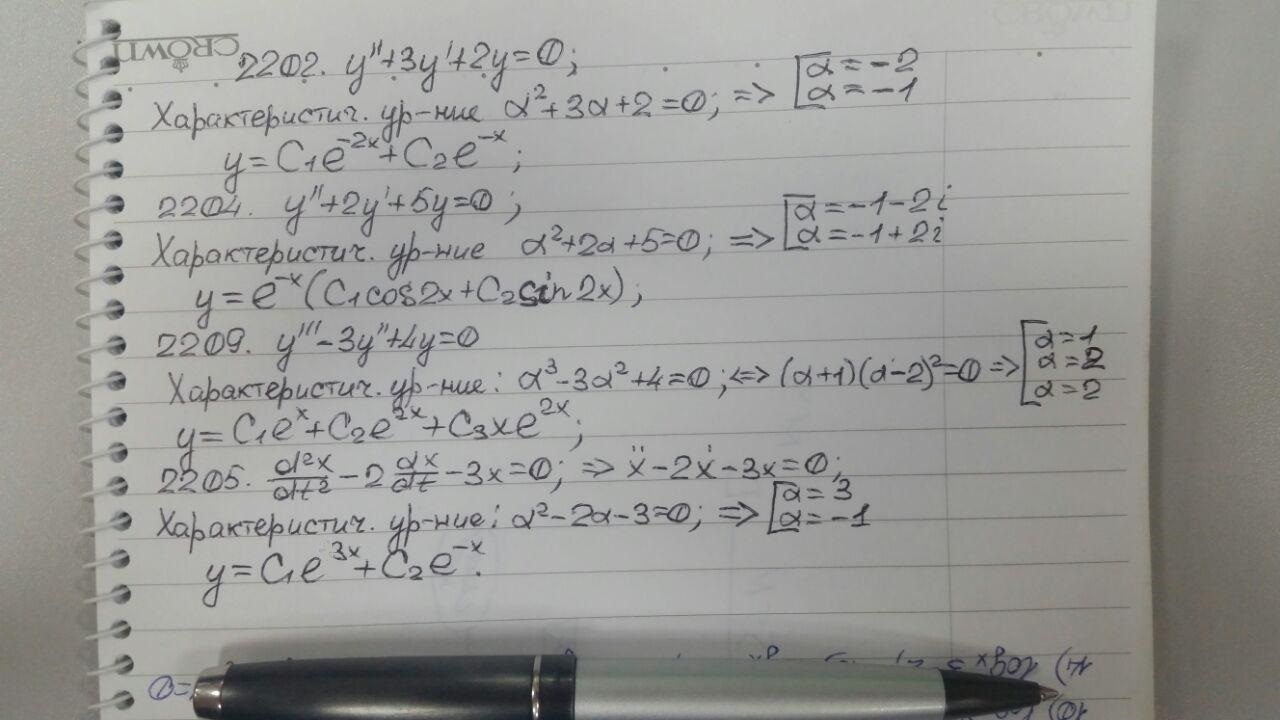 CROWN
2202. y''+3y'+2y=0;
Характеристич. ур-ние α²+3α+2=0; => [α=-2
α=-1
y=C₁e^{-2x}+C₂e^{-x};
2204. y''+2y'+5y=0;
Характеристич. ур-ние α²+2α+5=0; => [α=-1-2i
α=-1+2i
y=e^{-x}(C₁cos2x+C₂sin2x);
2209. y'''-3y''+4y=0
Характеристич. ур-ние: α³-3α²+4=0; <=> (α+1)(α-2)²=0 => [α=1
α=2
α=2
y=C₁e^{x}+C₂e^{2x}+C₃xe^{2x};
2205. d²x/dt² - 2 dx/dt - 3x=0; => ẍ-2ẋ-3x=0;
Характеристич. ур-ние: α²-2α-3=0; => [α=3
α=-1
y=C₁e^{3x}+C₂e^{-x}.
14) log
10)